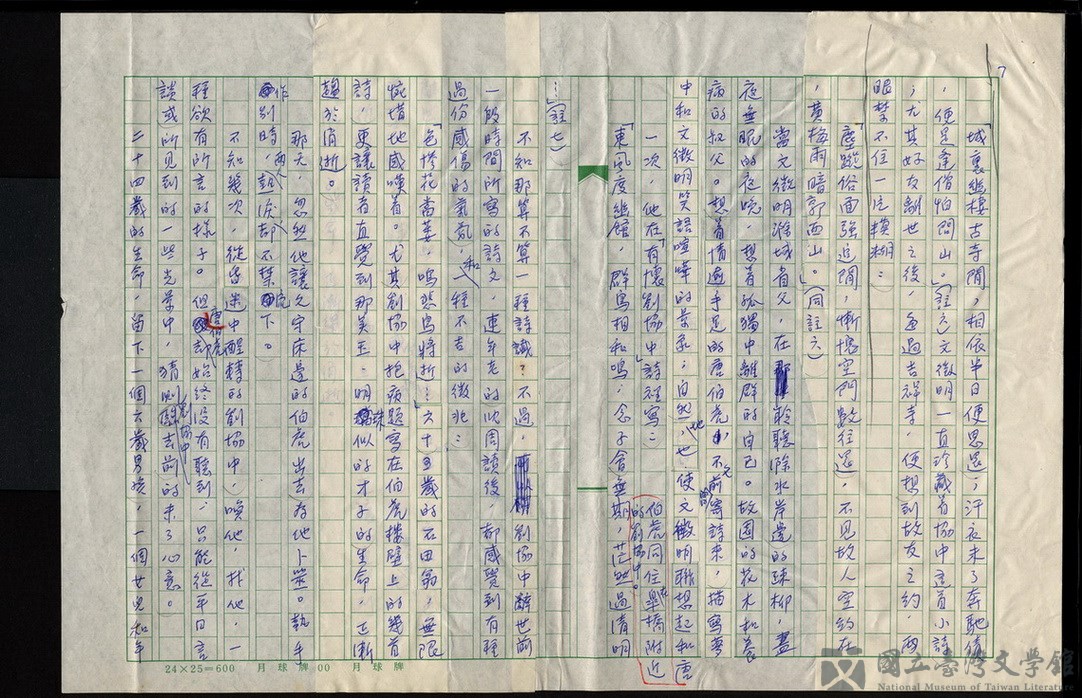 7
「城裏絕樓古寺閒，相依半日便思還；汗衣未了奔馳債
，便是逢僧怕問山。」(註六)文徵明一直珍藏着協中這首小詩
；尤其好友離世之後，每過古禪寺，便想到故友之約，兩
眼禁不住一片模糊：
「塵蹤俗面強追閒，慚愧空門數往還，不見故人空約在
，黃梅雨暗郭西山。」(同註六)
當文徵明滁城省父，在聆聽滁水岸邊的疎柳，盡
夜無眠的夜晚，想着孤獨中離群的自己。故園的花木和養
病的叔父。想着情逾手足的唐伯虎，不久前曾寄詩來，描寫夢
中和文徵明笑語喧嘩的景象，自然地，也使文徵明聯想起和唐
伯虎同住皋橋附近的劉協中。
一次，他在「有懷劉協中」詩裡寫：
「東風度絕鐘，群鳥相和鳴；念子會無期，茫然過清明
…」(註七)
不知那算不算一種詩讖？不過，劉協中辭世前
一段時間所寫的詩文，連年老的沈周讀後，都感覺到有種
過份感傷的氣氛，和一種不吉的徵兆：
「色慘花當萎，鳴悲鳥將逝」六十多歲的石田翁，無限
惋惜地感嘆着。尤其劉協中抱病題寫在伯虎樓壁上的幾首
詩，更讓讀者直覺到那美玉、明珠似的才子的生命，正漸
趨於消逝。
那天，忽然他讓久守床邊的伯虎出去為他卜筮。執手
作別時，兩人眼淚都不禁流下。
不知幾次，從昏迷中醒轉的劉協中，喚他，找他，一
種欲有所言的樣子。但唐伯虎却始終沒有聽到，只能從平日言
談或所見到的一些光景中，猜測劉協中去前的未了心意。
二十四歲的生命，留下一個六歲男孩，一個女兒和年
24×25=600 月球牌00 月球牌
國立臺灣文學館
National Museum of Taiwan Literature